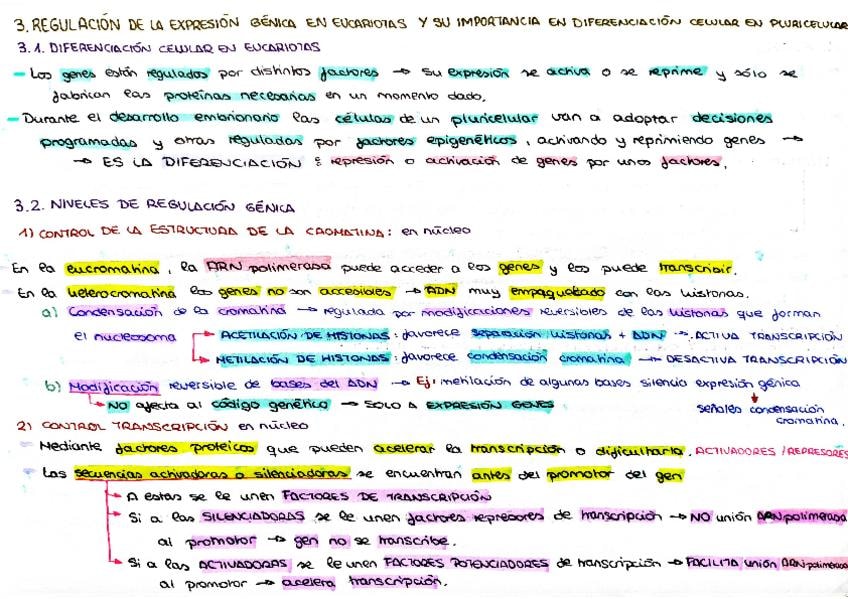 3. REGULACIÓN DE LA EXPRESIÓN GÉNICA EN EUCARIOTAS Y SU IMPORTANCIA EN DIFERENCIACIÓN CELULAR EN PLURICELULAR
3.1. DIFERENCIACIÓN CELULAR EN EUCARIOTAS
- Los genes están regulados por distintos factores → su expresión se activa o se reprime y sólo se
fabrican las proteínas necesarias en un momento dado.
- Durante el desarrollo embrionario las células de un pluricelular van a adoptar decisiones
programadas y otras reguladas por factores epigenéticos, activando y reprimiendo genes →
→ ES LA DIFERENCIACIÓN : represión o activación de genes por unos factores.
3.2. NIVELES DE REGULACIÓN GÉNICA
1) CONTROL DE LA ESTRUCTURA DE LA CROMATINA: en núcleo
En la eucromatina, la ARN polimerasa puede acceder a los genes y los puede transcribir.
En la heterocromatina los genes no son accesibles → ADN muy empaquetado con las histonas.
a) Condensación de la cromatina → regulada por modificaciones reversibles de las histonas que forman
el nucleosoma → ACETILACIÓN DE HISTONAS: favorece separación histonas + ADN → ACTIVA TRANSCRIPCIÓN
→ METILACIÓN DE HISTONAS: favorece condensación cromatina → DESACTIVA TRANSCRIPCIÓN
b) Modificación reversible de bases del ADN → Ej: metilación de algunas bases silencia expresión génica
→ NO afecta al código genético → SOLO A EXPRESIÓN GENES
señales condensación
cromatina.
2) CONTROL TRANSCRIPCIÓN en núcleo
- Mediante factores proteicos que pueden acelerar la transcripción o dificultarla. ACTIVADORES / REPRESORES
- Las secuencias activadoras o silenciadoras se encuentran antes del promotor del gen
→ A estas se le unen FACTORES DE TRANSCRIPCIÓN
→ Si a las SILENCIADORAS se le unen factores represores de transcripción → NO unión ARN polimerasa
al promotor → gen no se transcribe.
→ Si a las ACTIVADORAS se le unen FACTORES POTENCIADORES de transcripción → FACILITA unión ARN-polimerasa
al promotor → acelera transcripción.